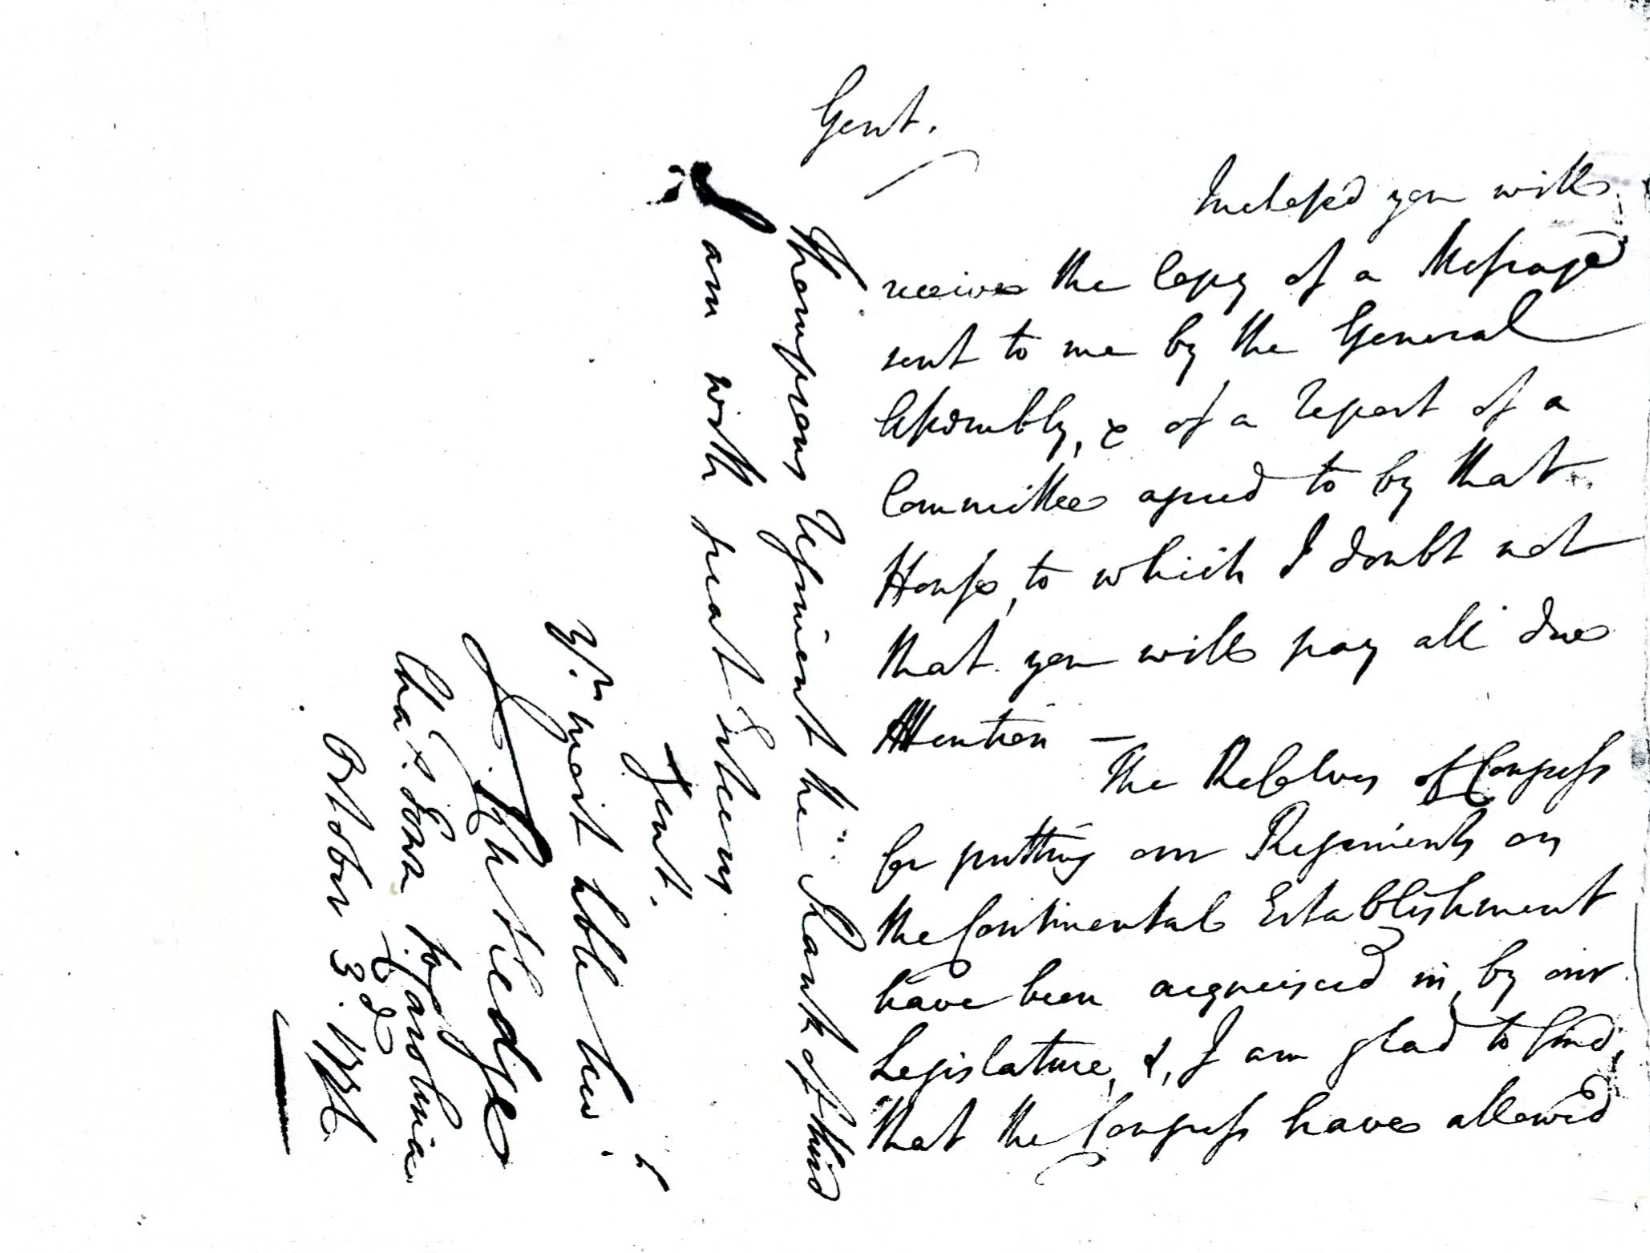 Gent.
Inclosed you will
receive the Copy of a Message
sent to me by the General
Assembly, & of a report of a
Committee agreed to by that
House, to which I doubt not
that you will pay all due
Attention —
The Resolves of Congress
for putting our Regiments on
the Continental Establishment
have been acquiesced in, by our
Legislature, &, I am glad to find,
that the Congress have allowed
Thompsons Regiment the Rank of third
I am with great Esteem
Gent.
Yr. most hble Ser.t
J. Rutledge
Chas. Town So Carolina
October 3d. 1776